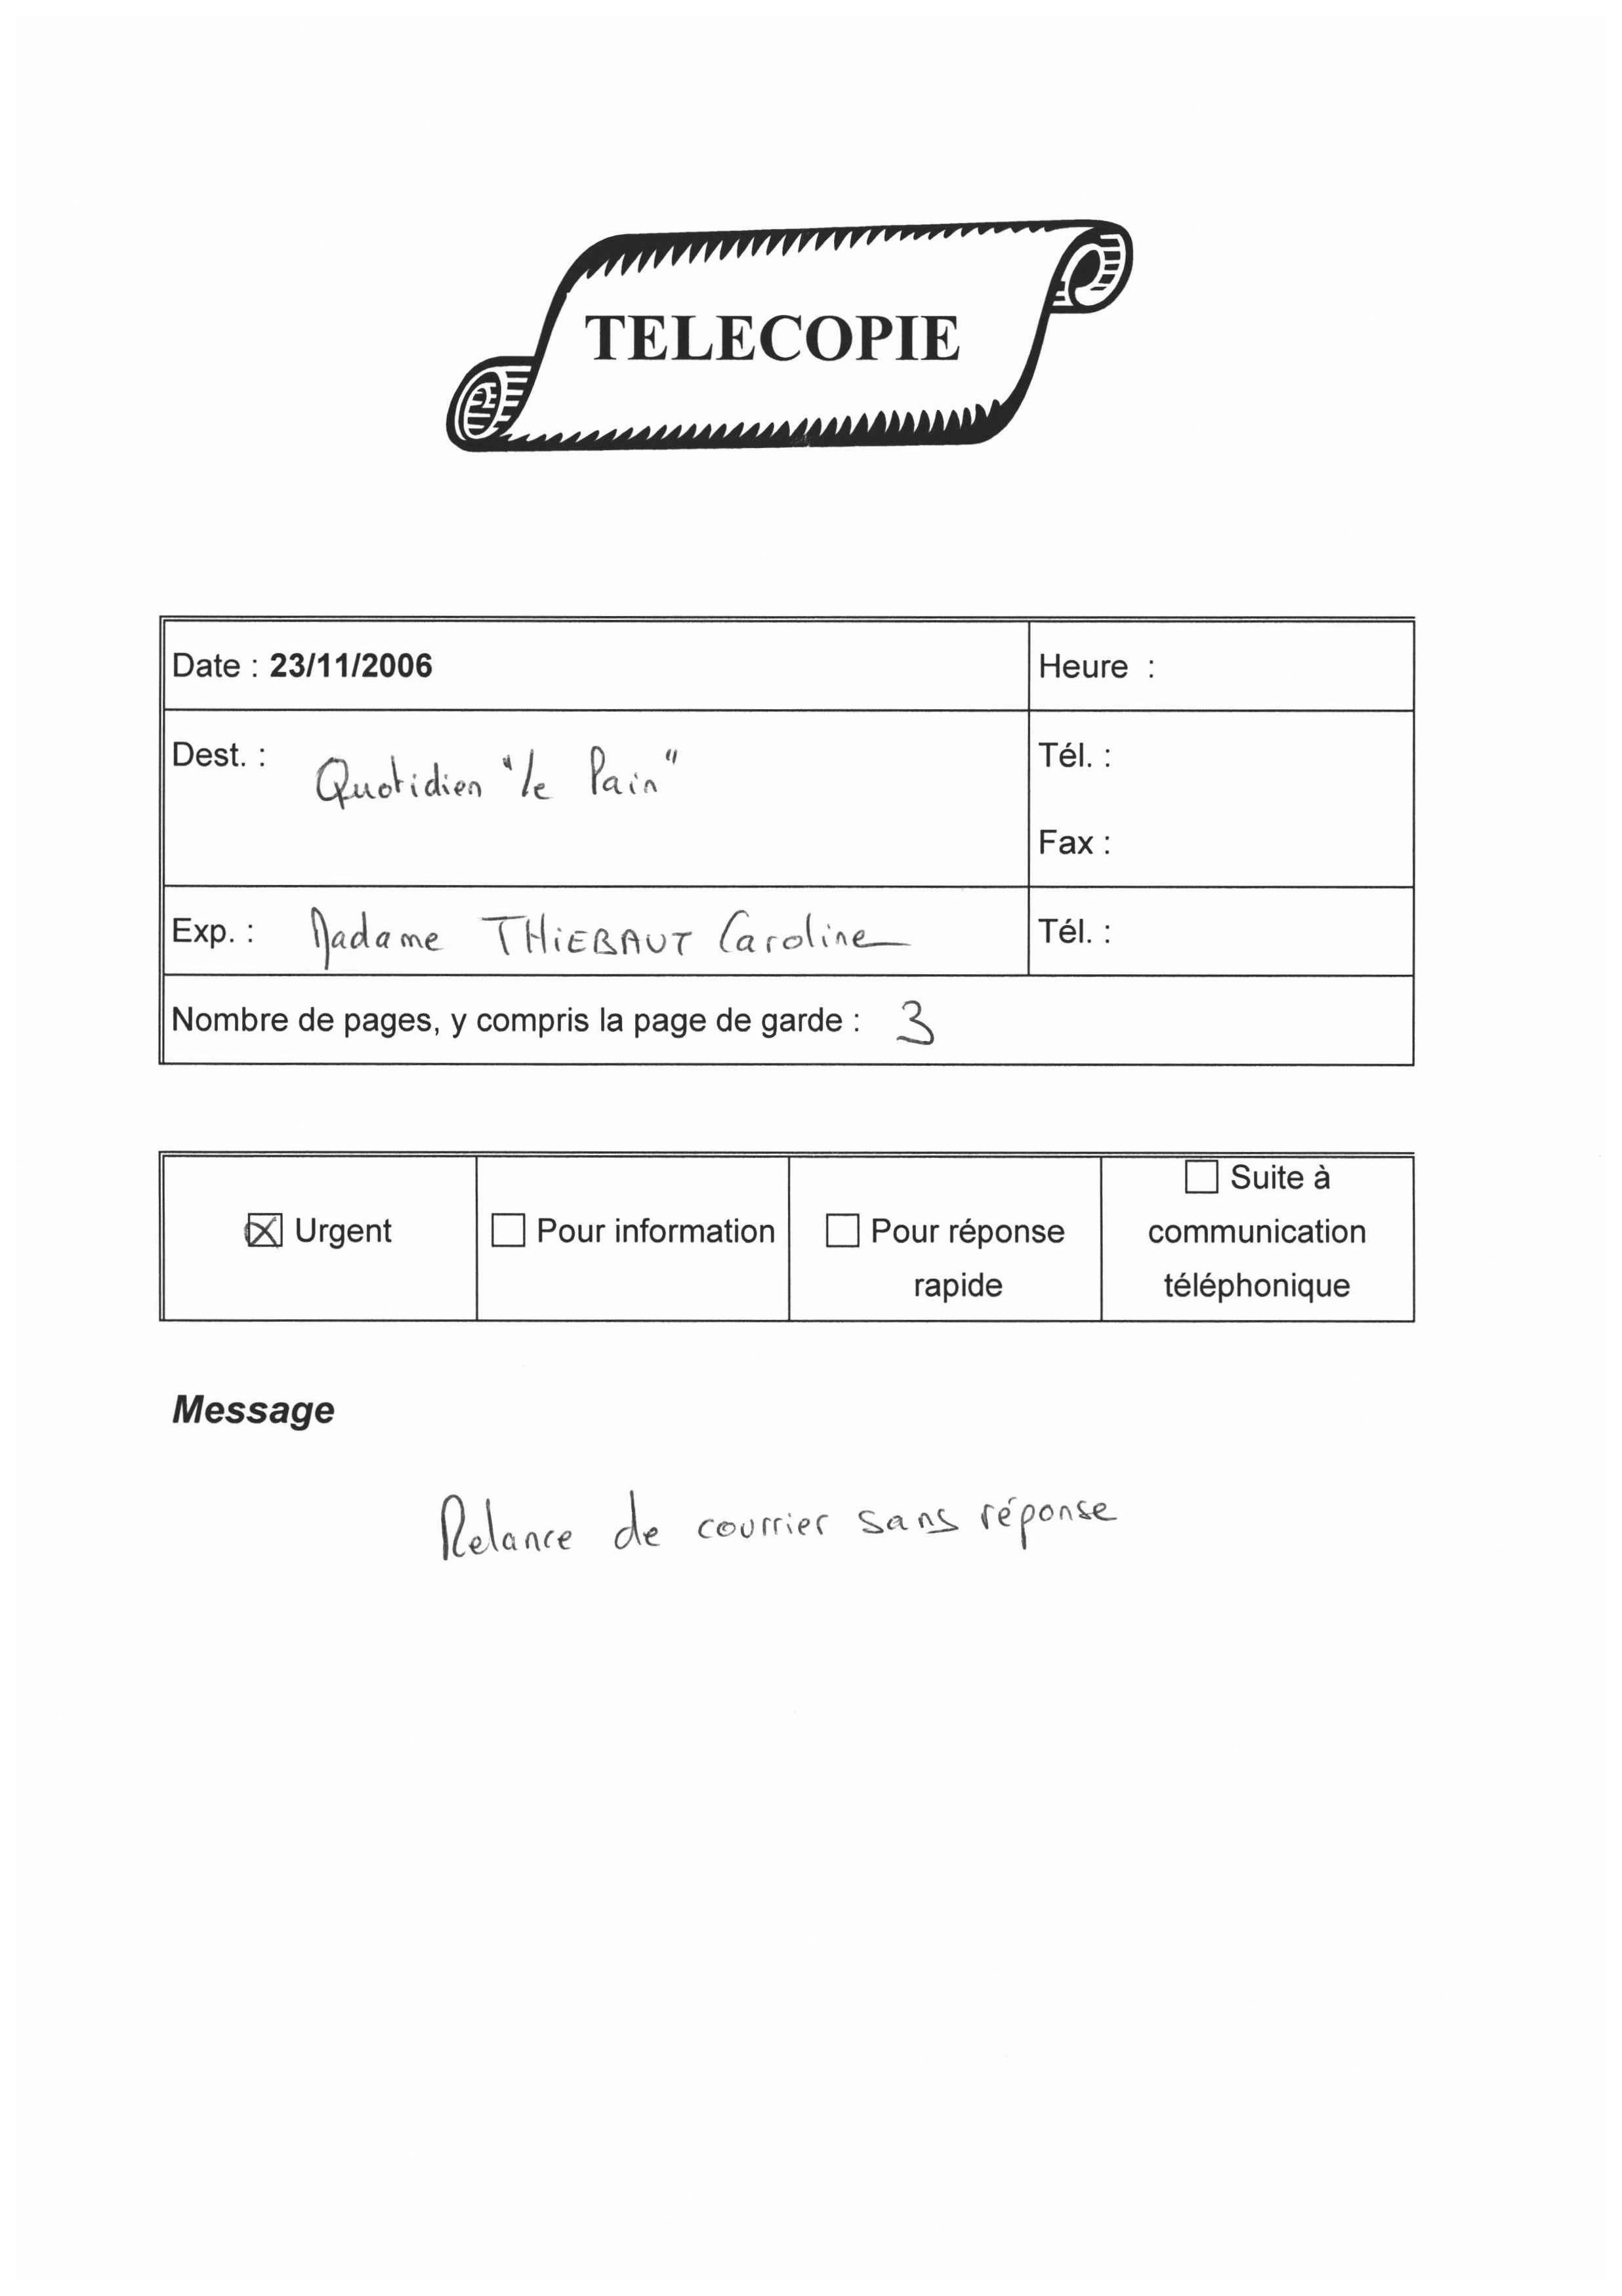 TELECOPIE
Date : 23/11/2006
Heure :
Dest. : Quotidien "le Pain"
Tél. :
Fax :
Exp. : Madame THIEBAUT Caroline
Tél. :
Nombre de pages, y compris la page de garde : 3
Urgent
Pour information
Pour réponse
rapide
Suite à
communication
téléphonique
Message
Relance de courrier sans réponse